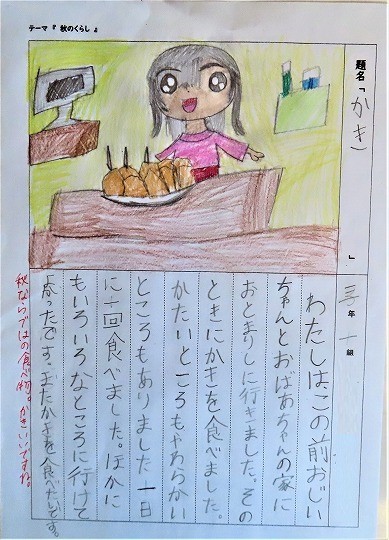 テーマ『 秋のくらし 』
題名「かき」
三年 一組
わたしは、この前おじい
ちゃんとおばあちゃんの家に
おとまりしに行きました。その
ときにかきを食べました。
かたいところもやわらかい
ところもありました一日
に十回食べました。ほかに
もいろいろなところに行けて
よかったです。またかきを食べたいです。
秋ならではの食べ物。かきいいですね。